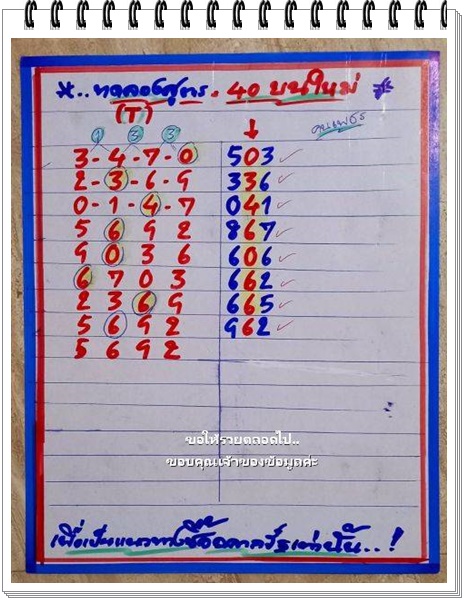 *..ทดลองสูตร. 40 บนใหม่ *
(T)
1 3 3
3-4-7-0 503 ✓
2-3-6-9 336 ✓
0-1-4-7 041 ✓
5 6 9 2 867 ✓
9 0 3 6 606 ✓
6 7 0 3 662 ✓
2 3 6 9 665 ✓
5 6 9 2 962 ✓
5 6 9 2
ขอให้รวยตลอดไป..
ขอบคุณเจ้าของข้อมูลค่ะ
เพื่อเป็นแนวทางซื้อสลากรัฐเท่านั้น..!